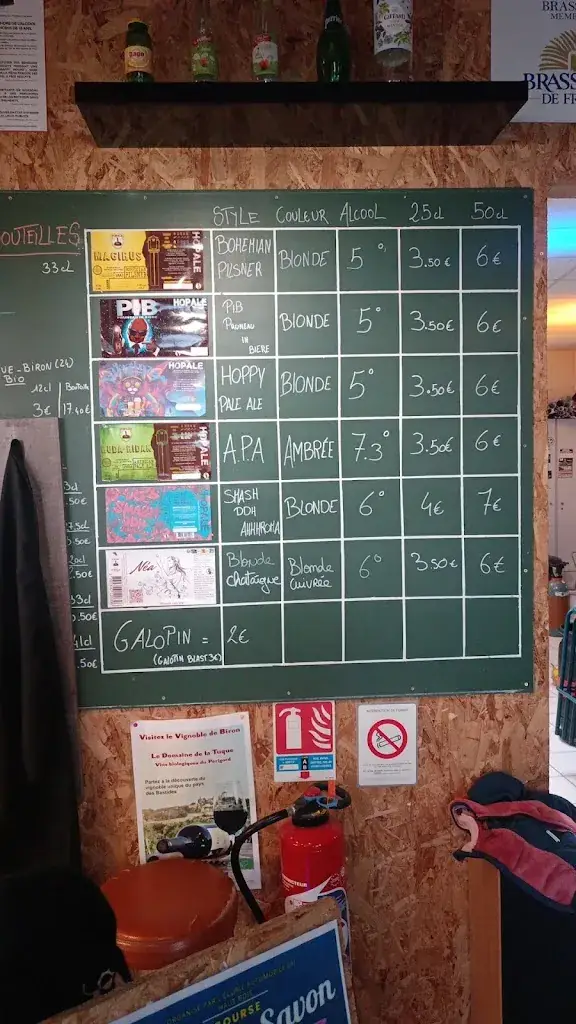 BRASS
MEM
BRASS
DE FR
OUTEILLES
33cl
VE-BIRON (24)
BIO
12cl | Bouteille
3€ | 17.40€
STYLE COULEUR ALCOOL 25cl 50cl
MAGIRUS HOPALE BOHEMIAN PILSNER BLONDE 5° 3.50€ 6€
PIB HOPALE PIB PRUNEAU IN BIERE BLONDE 5° 3.50€ 6€
HOPALE HOPPY PALE ALE BLONDE 5° 3.50€ 6€
HOPALE A.P.A AMBRÉE 7.3° 3.50€ 6€
SMASH DDH HOPALE SMASH DDH AHHHROMA BLONDE 6° 4€ 7€
Néa Blonde chataigne Blonde cuivrée 6° 3.50€ 6€
GALOPIN = 2€
(GALOPIN BLAST 3€)
.50€
.50€
.50€
.50€
Visitez le Vignoble de Biron
Le Domaine de la Tuque
Vins biologiques du Périgord
Partez à la découverte du
vignoble unique du pays
des Bastides
BOURSE
Savon